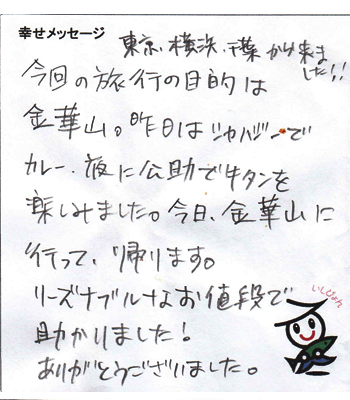 幸せメッセージ
東京、横浜、千葉から来ま
した!!
今回の旅行の目的は
金華山。昨日はジャハジーで
カレー、夜に公助で牛タンを
楽しみました。今日、金華山に
行って、帰ります。
リーズナブルなお値段で
助かりました!
ありがとうございました。
いしぴょん